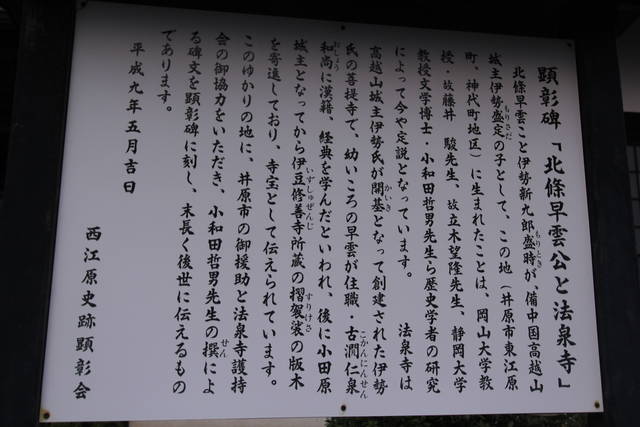 顕彰碑「北條早雲公と法泉寺」
北條早雲こと伊勢新九郎盛時が、備中国高越山
もりとき
城主伊勢盛定の子として、この地（井原市東江原
もりさだ
町・神代町地区）に生まれたことは、岡山大学教
授・故藤井 駿先生、故立木望隆先生、静岡大学
教授文学博士・小和田哲男先生ら歴史学者の研究
によって今や定説となっています。 法泉寺は
高越山城主伊勢氏が開基となって創建された伊勢
かいき
氏の菩提寺で、幼いころの早雲が住職・古澗仁泉
こかんにんせん
和尚に漢籍、経典を学んだといわれ、後に小田原
おしょう
城主となってから伊豆修善寺所蔵の摺袈裟の版木
いずしゅぜんじ
すりけさ
を寄進しており、寺宝として伝えられています。
このゆかりの地に、井原市の御援助と法泉寺護持
会の御協力をいただき、小和田哲男先生の撰によ
せん
る碑文を顕彰碑に刻し、末長く後世に伝えるもの
であります。
平成九年五月吉日
西江原史跡顕彰会